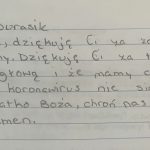 ourasik
, dziękuję Ci za
ny. Dziękuję Ci za
głową i że mamy c
koronawirus nie
atko Boża, chroń nas
men.